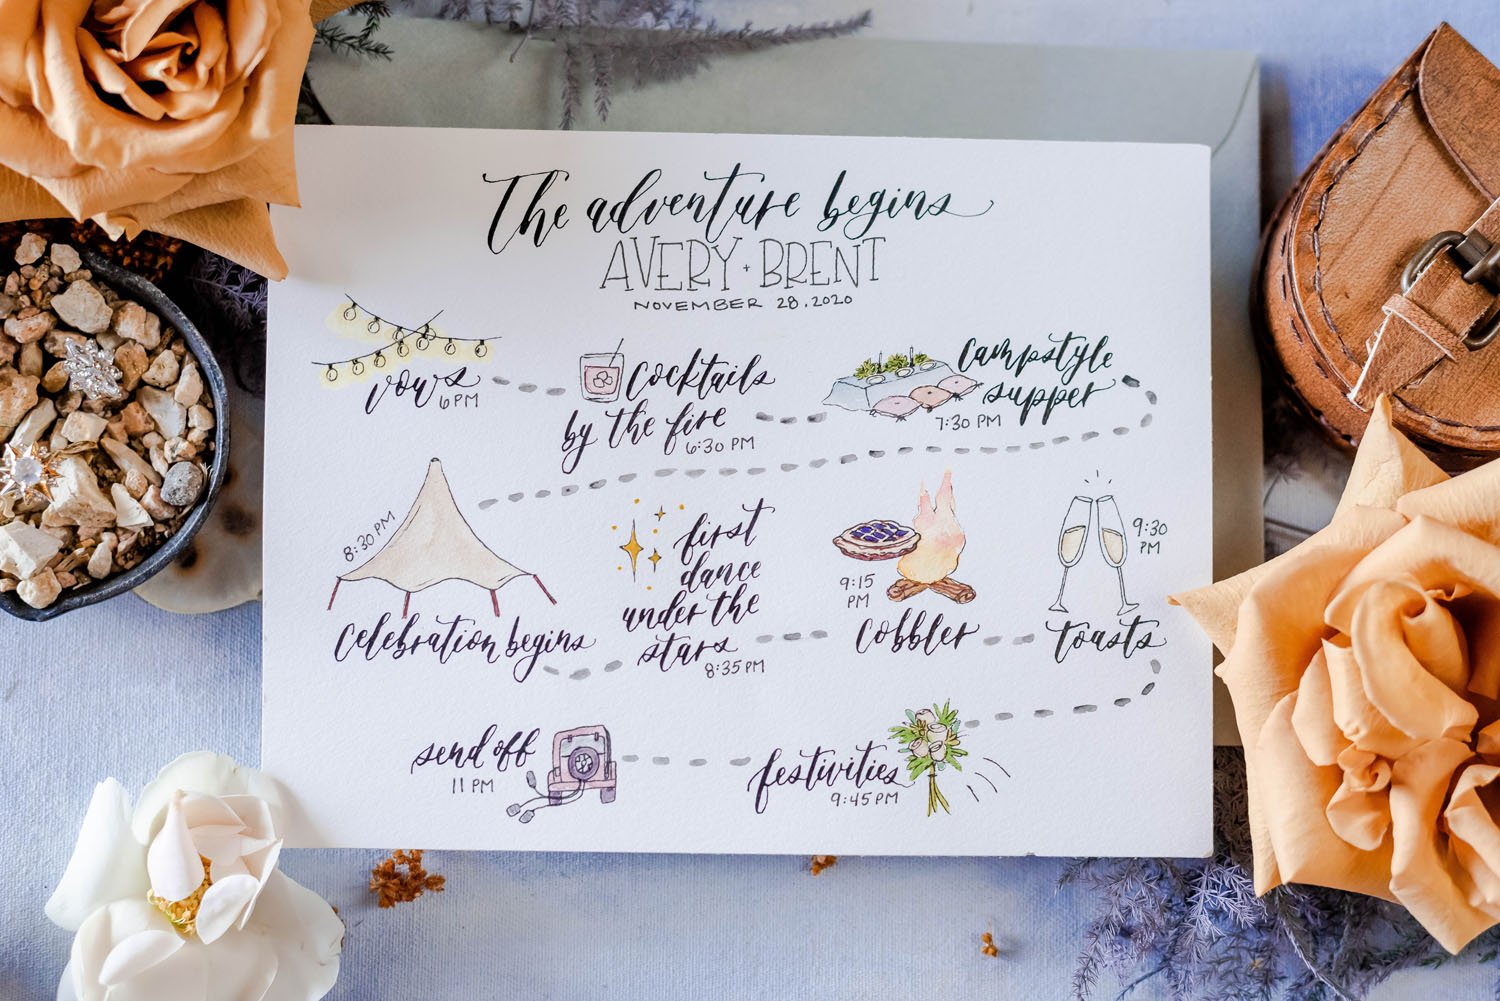 The adventure begins
AVERY + BRENT
NOVEMBER 28, 2020
vows
6 PM
Cocktails
by the fire
6:30 PM
Campstyle
supper
7:30 PM
8:30 PM
Celebration begins
first
dance
under the
stars
8:35 PM
9:15
PM
Cobbler
9:30
PM
toasts
send off
11 PM
festivities
9:45 PM